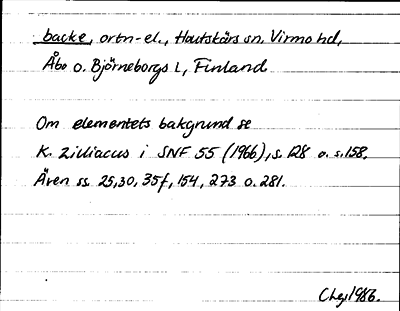 backe, ortn-el., Houtskärs sn, Virmo hd,
Åbo o. Björneborgs L, Finland
Om elementets bakgrund se
K. Zilliacus i SNF 55 (1966), s. 128 o. s. 158.
Även ss. 25, 30, 35f, 154, 273 o. 281.
1986.